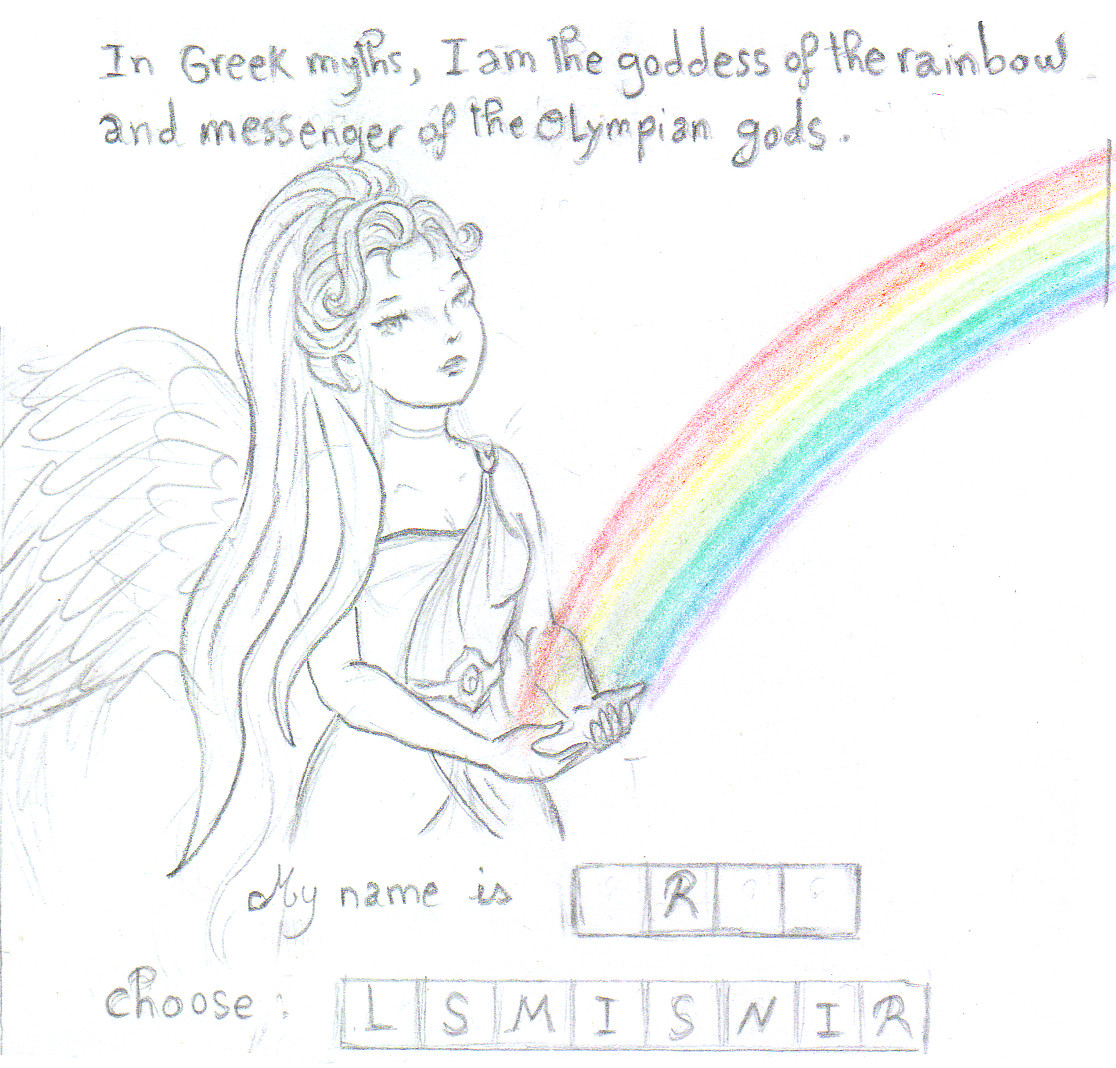 In Greek myths, I am the goddess of the rainbow
and messenger of the Olympian gods.
My name is ? R ? ?
choose: L S M I S N I R